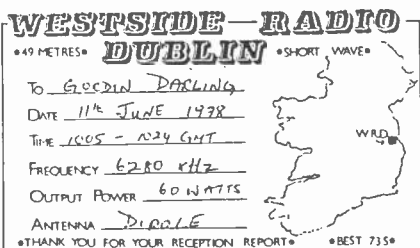 WESTSIDE — RADIO
DUBLIN
•49 METRES•
•SHORT WAVE•
TO GORDIN DARLING
DATE 11th JUNE 1978
TIME 1005 - 1024 GMT
FREQUENCY 6280 kHz
OUTPUT POWER 60 WATTS
ANTENNA DIPOLE
W.R.D.
•THANK YOU FOR YOUR RECEPTION REPORT•
•BEST 73S•